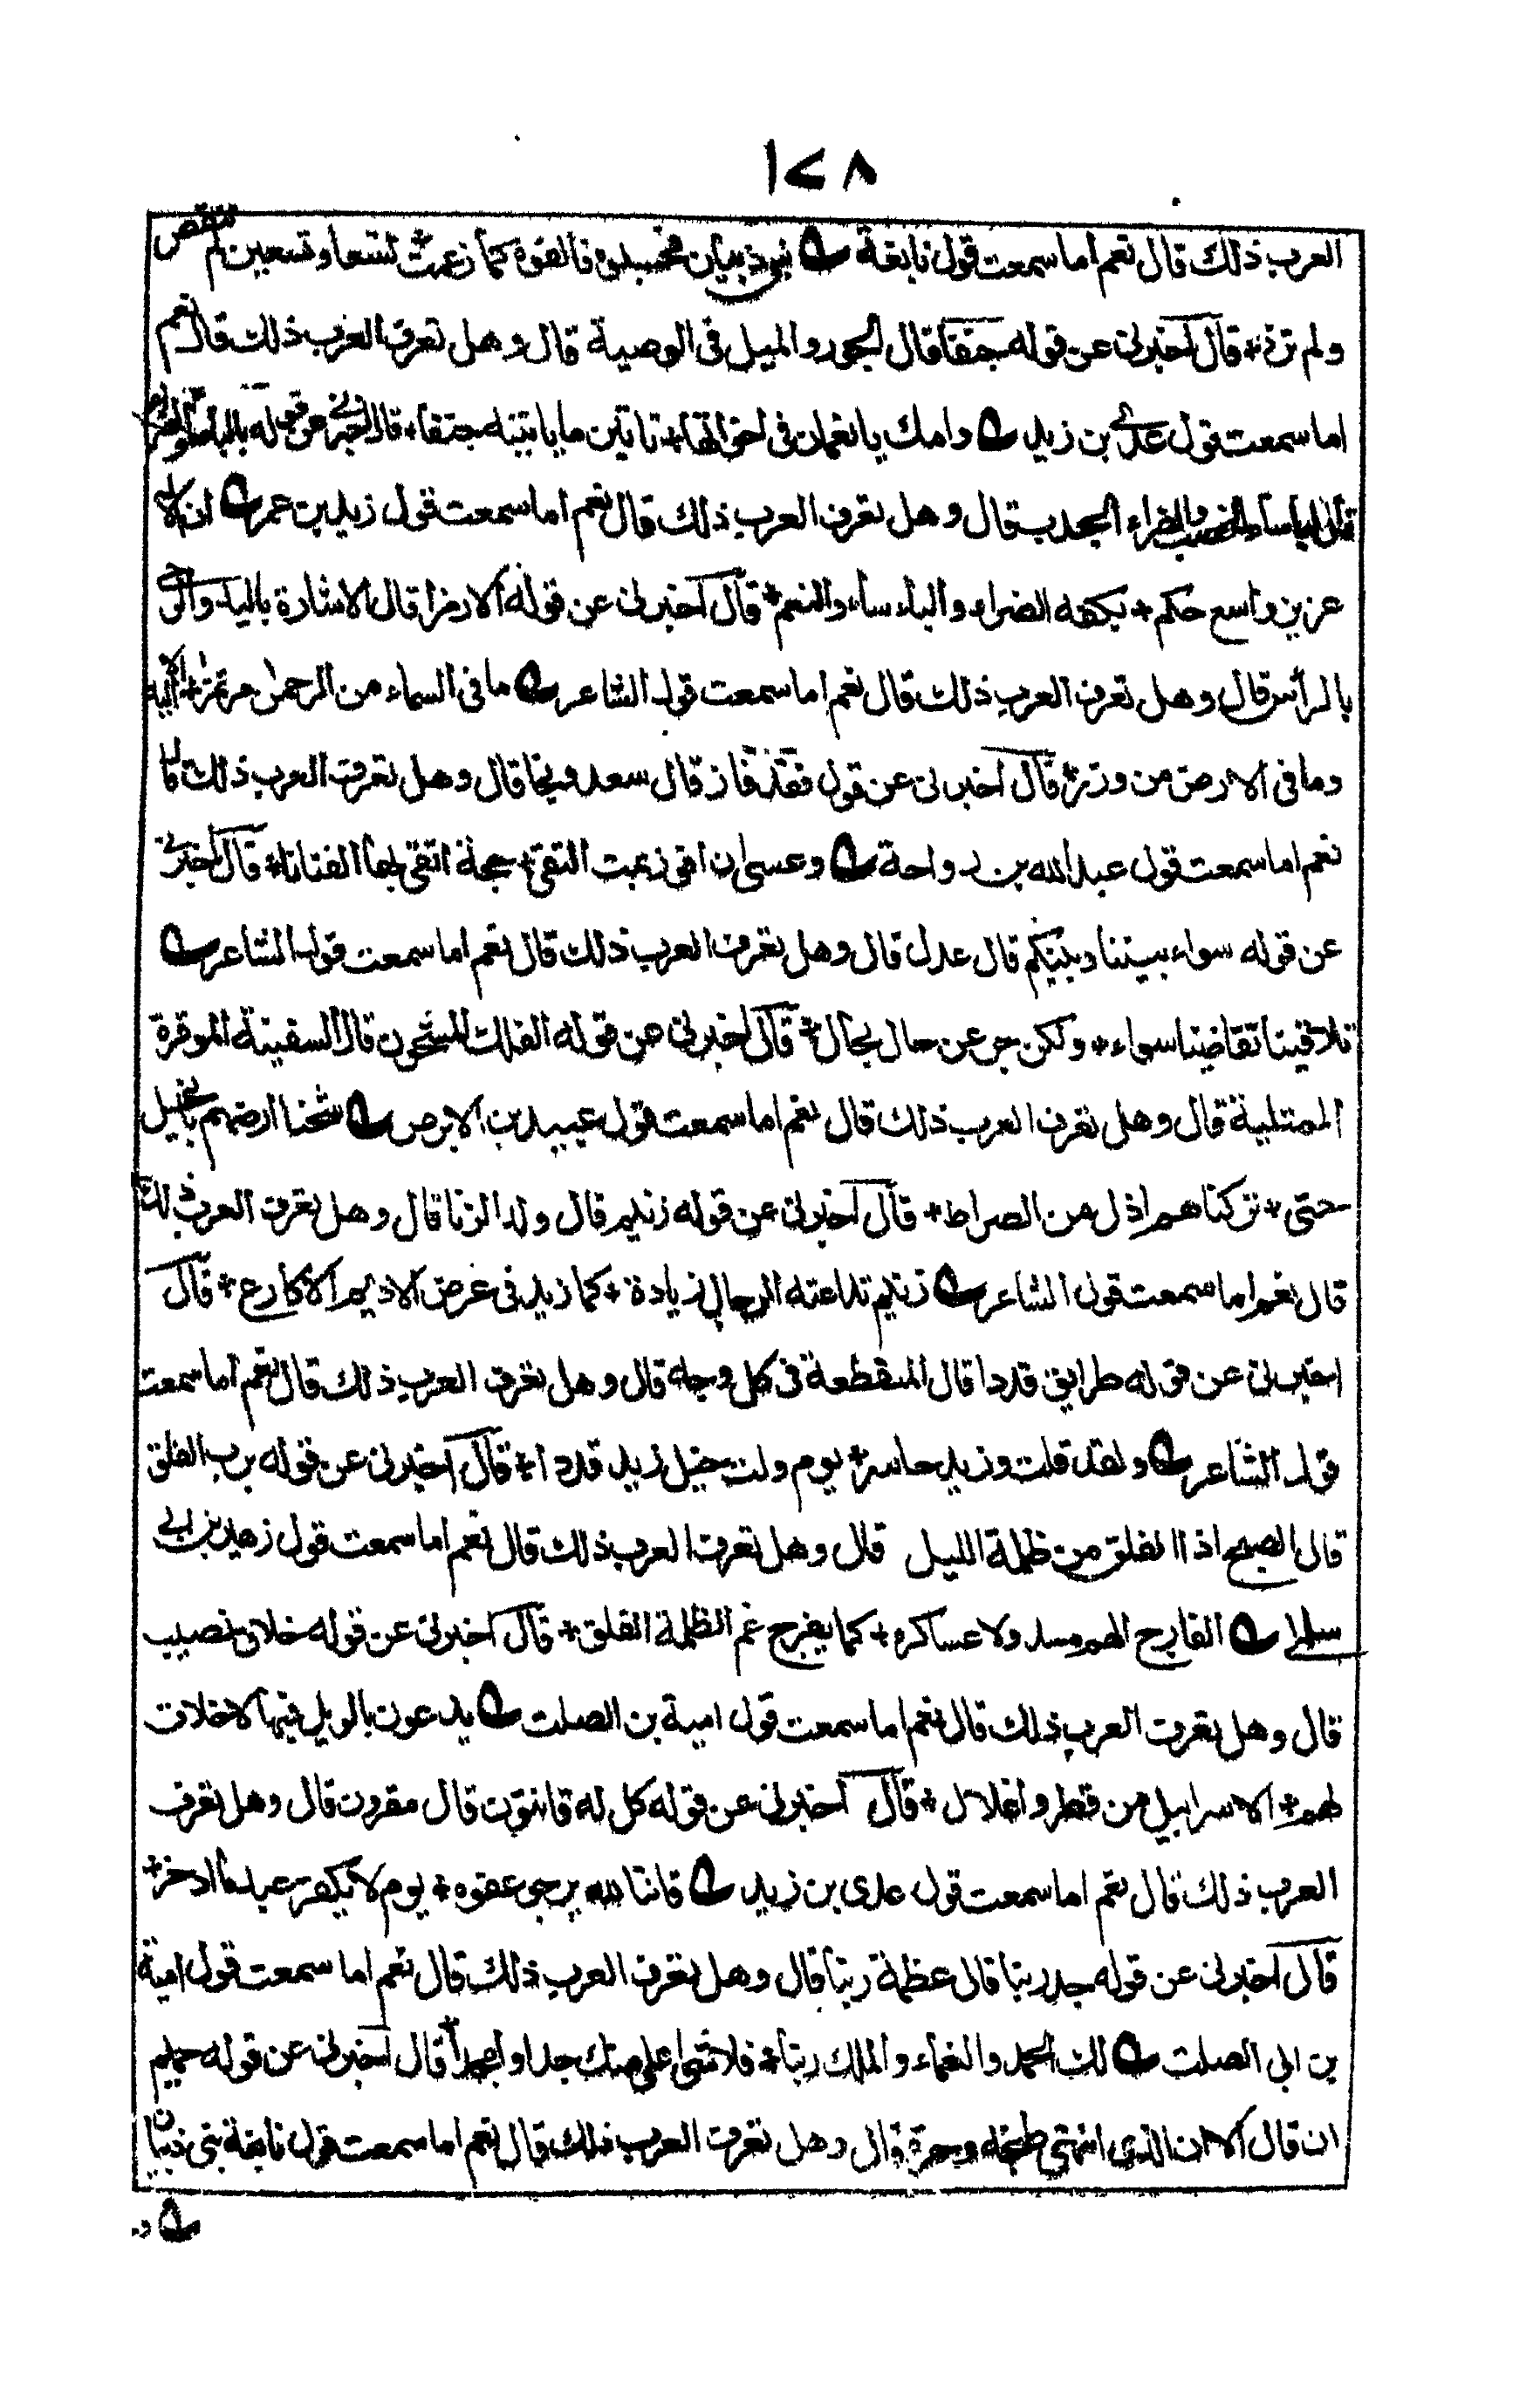 ١٢٨
العرب ذلك قال نعم اما سمعت قول نابغة بنى ذبيان فحسبوه فالفوه كما زعمت تسعا وتسعين لم تنقص
ولم تزد قال اخبرنى عن قوله جنفا قال الجور والميل فى الوصية قال وهل تعرف العرب ذلك قال نعم
اما سمعت قول عدى بن زيد وامك يا نعمان فى اخواتها تاتين ما ياتينه جنفا قال اخبرنى عن قوله بالباساء والضراء
قال الباساء الخصب والضراء الجدب قال وهل تعرف العرب ذلك قال نعم اما سمعت قول زيد بن عمر ان الاله
عزيز واسع حكم بكفه الضراء والباساء والنعم قال اخبرنى عن قوله الا رمزا قال الاشارة باليد والوحى
بالرأس قال وهل تعرف العرب ذلك قال نعم اما سمعت قول الشاعر ما فى السماء من الرحمن مرتمز الا اليه
وما فى الارض من وزر قال اخبرنى عن قول فقد فاز قال سعد ونجا قال وهل تعرف العرب ذلك قال
نعم اما سمعت قول عبد الله بن رواحة وعسى ان افوز ثمت القى حجة اتقى بها الفتانا قال اخبرنى
عن قوله سواء بيننا وبينكم قال عدل قال وهل تعرف العرب ذلك قال نعم اما سمعت قول الشاعر
تلاقينا تقاضينا سواء ولكن جر عن حال بحال قال اخبرنى عن قوله الفلك المشحون قال السفينة الموقرة
الممتلية قال وهل تعرف العرب ذلك قال نعم اما سمعت قول عبيد بن الابرص شحنا ارضهم بالخيل
حتى تركناهم اذل من الصراط قال اخبرنى عن قوله زنيم قال ولد الزنا قال وهل تعرف العرب ذلك
قال نعم اما سمعت قول الشاعر زنيم تداعته الرجال زيادة كما زيد فى عرض الاديم الاكارع قال
اخبرنى عن قوله طرايق قددا قال المنقطعة فى كل وجه قال وهل تعرف العرب ذلك قال نعم اما سمعت
قول الشاعر ولقد قلت وزيد حاسر يوم ولت خيل زيد قددا قال اخبرنى عن قوله برب الفلق
قال الصبح اذا انفلق من ظلمة الليل قال وهل تعرف العرب ذلك قال نعم اما سمعت قول زهير بن ابى
سلمى الفارج الهم مسد ولا عساكره كما يفرج غم الظلمة الفلق قال اخبرنى عن قوله خلاق نصيب
قال وهل تعرف العرب ذلك قال نعم اما سمعت قول امية بن الصلت يدعون بالويل فيها لا خلاق
لهم الا سرابيل من قطر واغلال قال اخبرنى عن قوله كل له قانتون قال مقرون قال وهل تعرف
العرب ذلك قال نعم اما سمعت قول عدى بن زيد قانتا لله يرجو عفوه يوم لا يكفر عبد ما ادخر
قال اخبرنى عن قوله جد ربنا قال عظمة ربنا قال وهل تعرف العرب ذلك قال نعم اما سمعت قول امية
بن ابى الصلت لك الحمد والنعماء والملك ربنا فلا شى اعلى منك جدا وامجدا قال اخبرنى عن قوله حميم
ان قال الان الذى انتهى طبخه وحره قال وهل تعرف العرب ذلك قال نعم اما سمعت قول نابغة بنى ذبيان